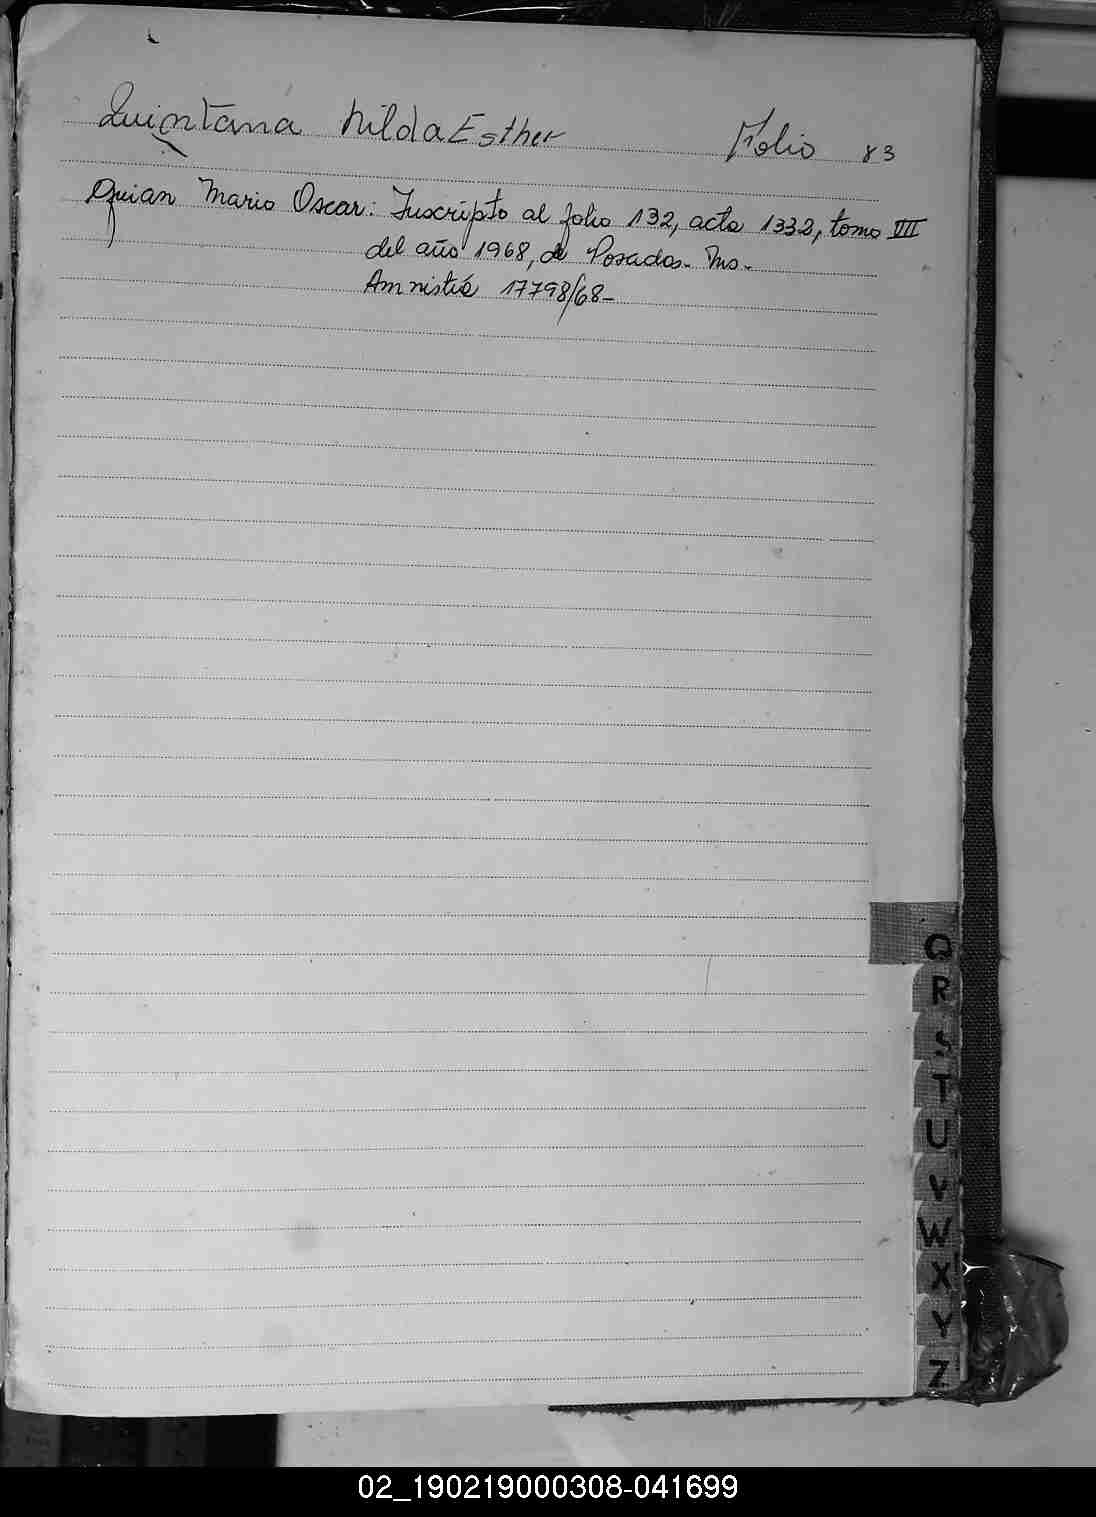 Quintana hilda Esther Folio 83
Quian Mario Oscar: Inscripto al folio 132, acta 1332, tomo VII
del año 1968, de Posadas. Ms.
Amnistía 17798/68-
Q
R
S
T
U
V
W
X
Y
Z
02_190219000308-041699